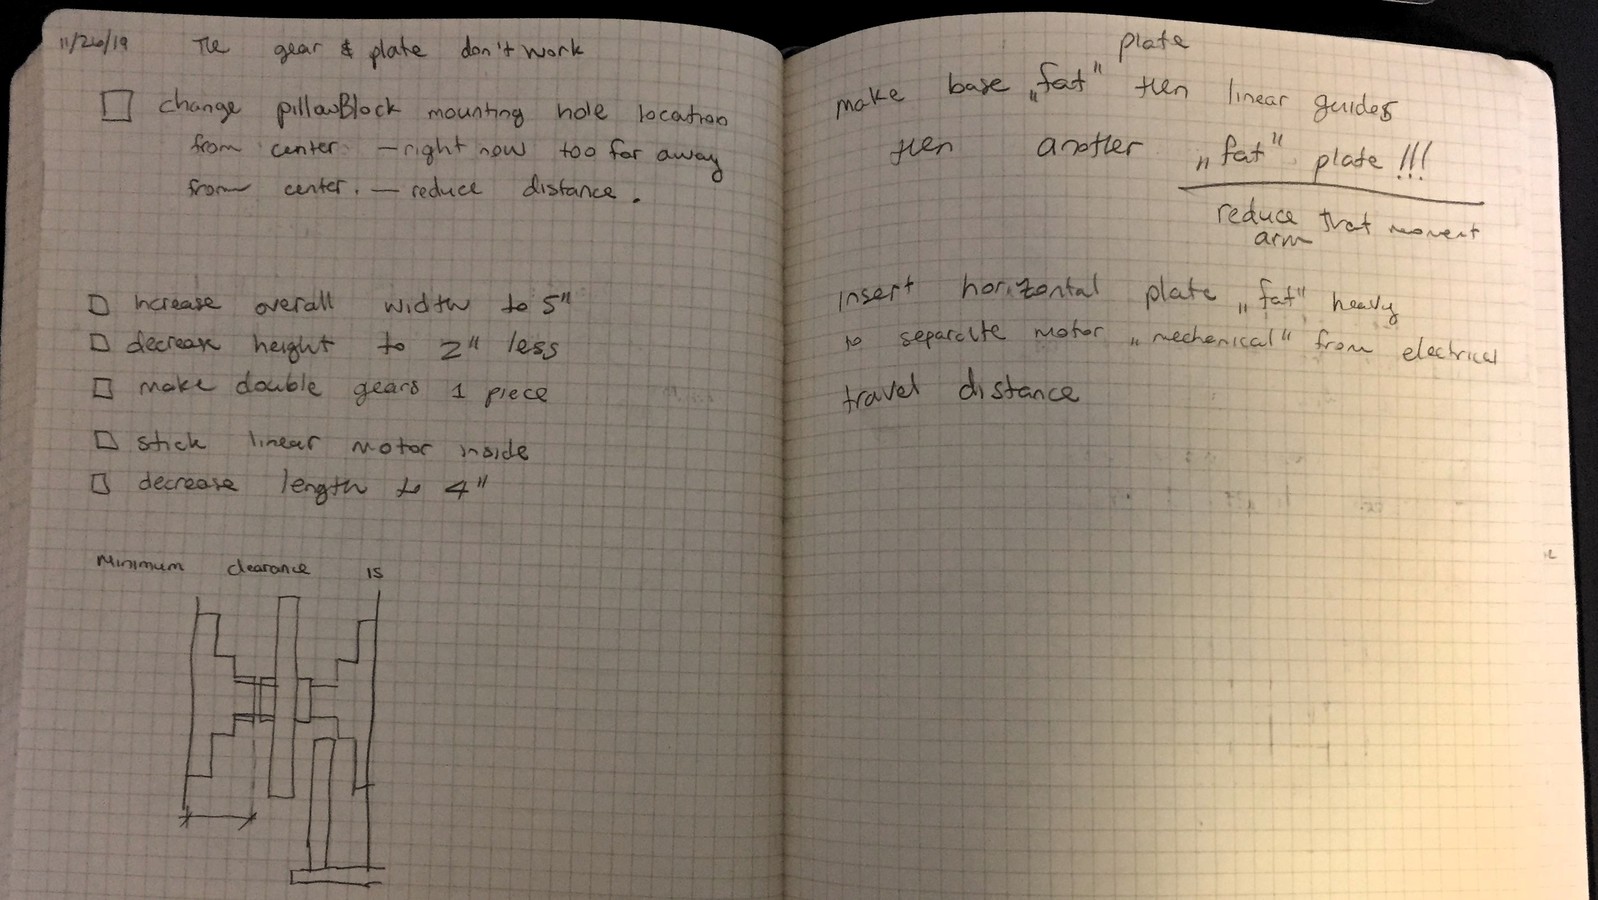 11/26/19 The gear & plate don't work
change pillowBlock mounting hole location
from center - right now too far away
from center. - reduce distance.
increase overall width to 5"
decrease height to 2" less
make double gears 1 piece
stick linear motor inside
decrease length to 4"
Minimum clearance is
plate
make base „fat" then linear guides
then another „fat" plate!!!
reduce that moment
arm
insert horizontal plate „fat" heavy
to separate motor „mechanical" from electrical
travel distance